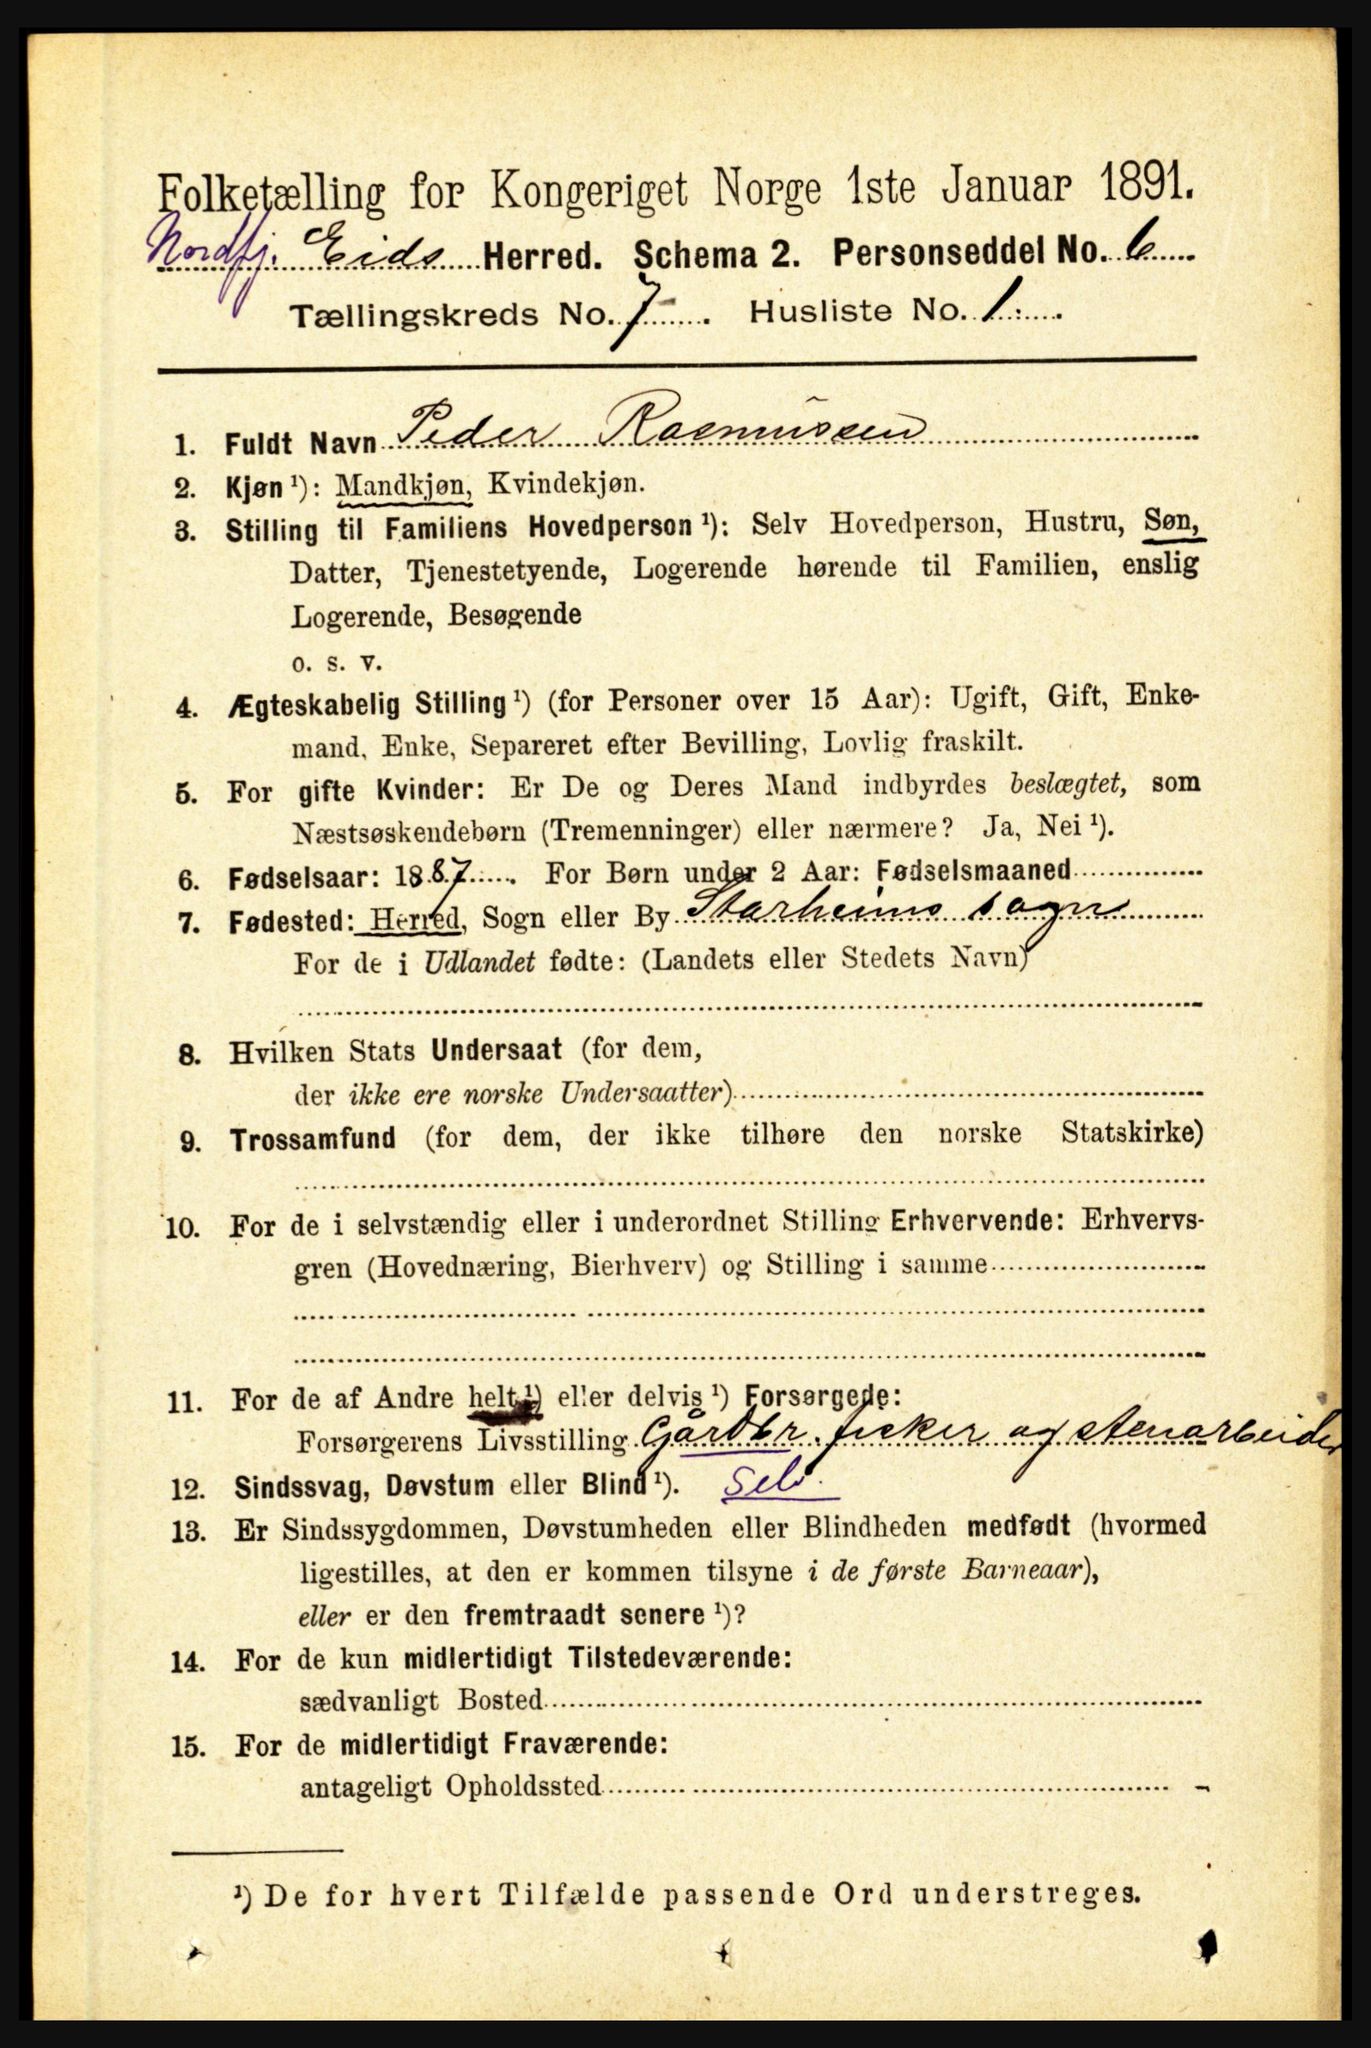 Folketælling for Kongeriget Norge 1ste Januar 1891.
Nordfj. Eids Herred. Schema 2. Personseddel No. 6
Tællingskreds No. 7 . Husliste No. 1 .
1. Fuldt Navn Peder Rasmussen
2. Kjøn ¹): Mandkjøn, Kvindekjøn.
3. Stilling til Familiens Hovedperson ¹): Selv Hovedperson, Hustru, Søn,
Datter, Tjenestetyende, Logerende hørende til Familien, enslig
Logerende, Besøgende
o. s. v.
4. Ægteskabelig Stilling ¹) (for Personer over 15 Aar): Ugift, Gift, Enke-
mand, Enke, Separeret efter Bevilling, Lovlig fraskilt.
5. For gifte Kvinder: Er De og Deres Mand indbyrdes beslægtet, som
Næstsøskendebørn (Tremenninger) eller nærmere? Ja, Nei ¹).
6. Fødselsaar: 1887 . For Børn under 2 Aar: Fødselsmaaned
7. Fødested: Herred, Sogn eller By Starheims sogn
For de i Udlandet fødte: (Landets eller Stedets Navn)
8. Hvilken Stats Undersaat (for dem,
der ikke ere norske Undersaatter)
9. Trossamfund (for dem, der ikke tilhøre den norske Statskirke)
10. For de i selvstændig eller i underordnet Stilling Erhvervende: Erhvervs-
gren (Hovednæring, Bierhverv) og Stilling i samme
11. For de af Andre helt ¹) eller delvis ¹) Forsørgede:
Forsørgerens Livsstilling Gårdbr. fisker og stenarbeider
12. Sindssvag, Døvstum eller Blind ¹). Selv.
13. Er Sindssygdommen, Døvstumheden eller Blindheden medfødt (hvormed
ligestilles, at den er kommen tilsyne i de første Barneaar),
eller er den fremtraadt senere ¹)?
14. For de kun midlertidigt Tilstedeværende:
sædvanligt Bosted
15. For de midlertidigt Fraværende:
antageligt Opholdssted
¹) De for hvert Tilfælde passende Ord understreges.